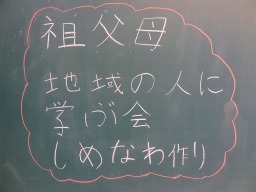 祖父母
地域の人に
学ぶ会
しめなわ作り